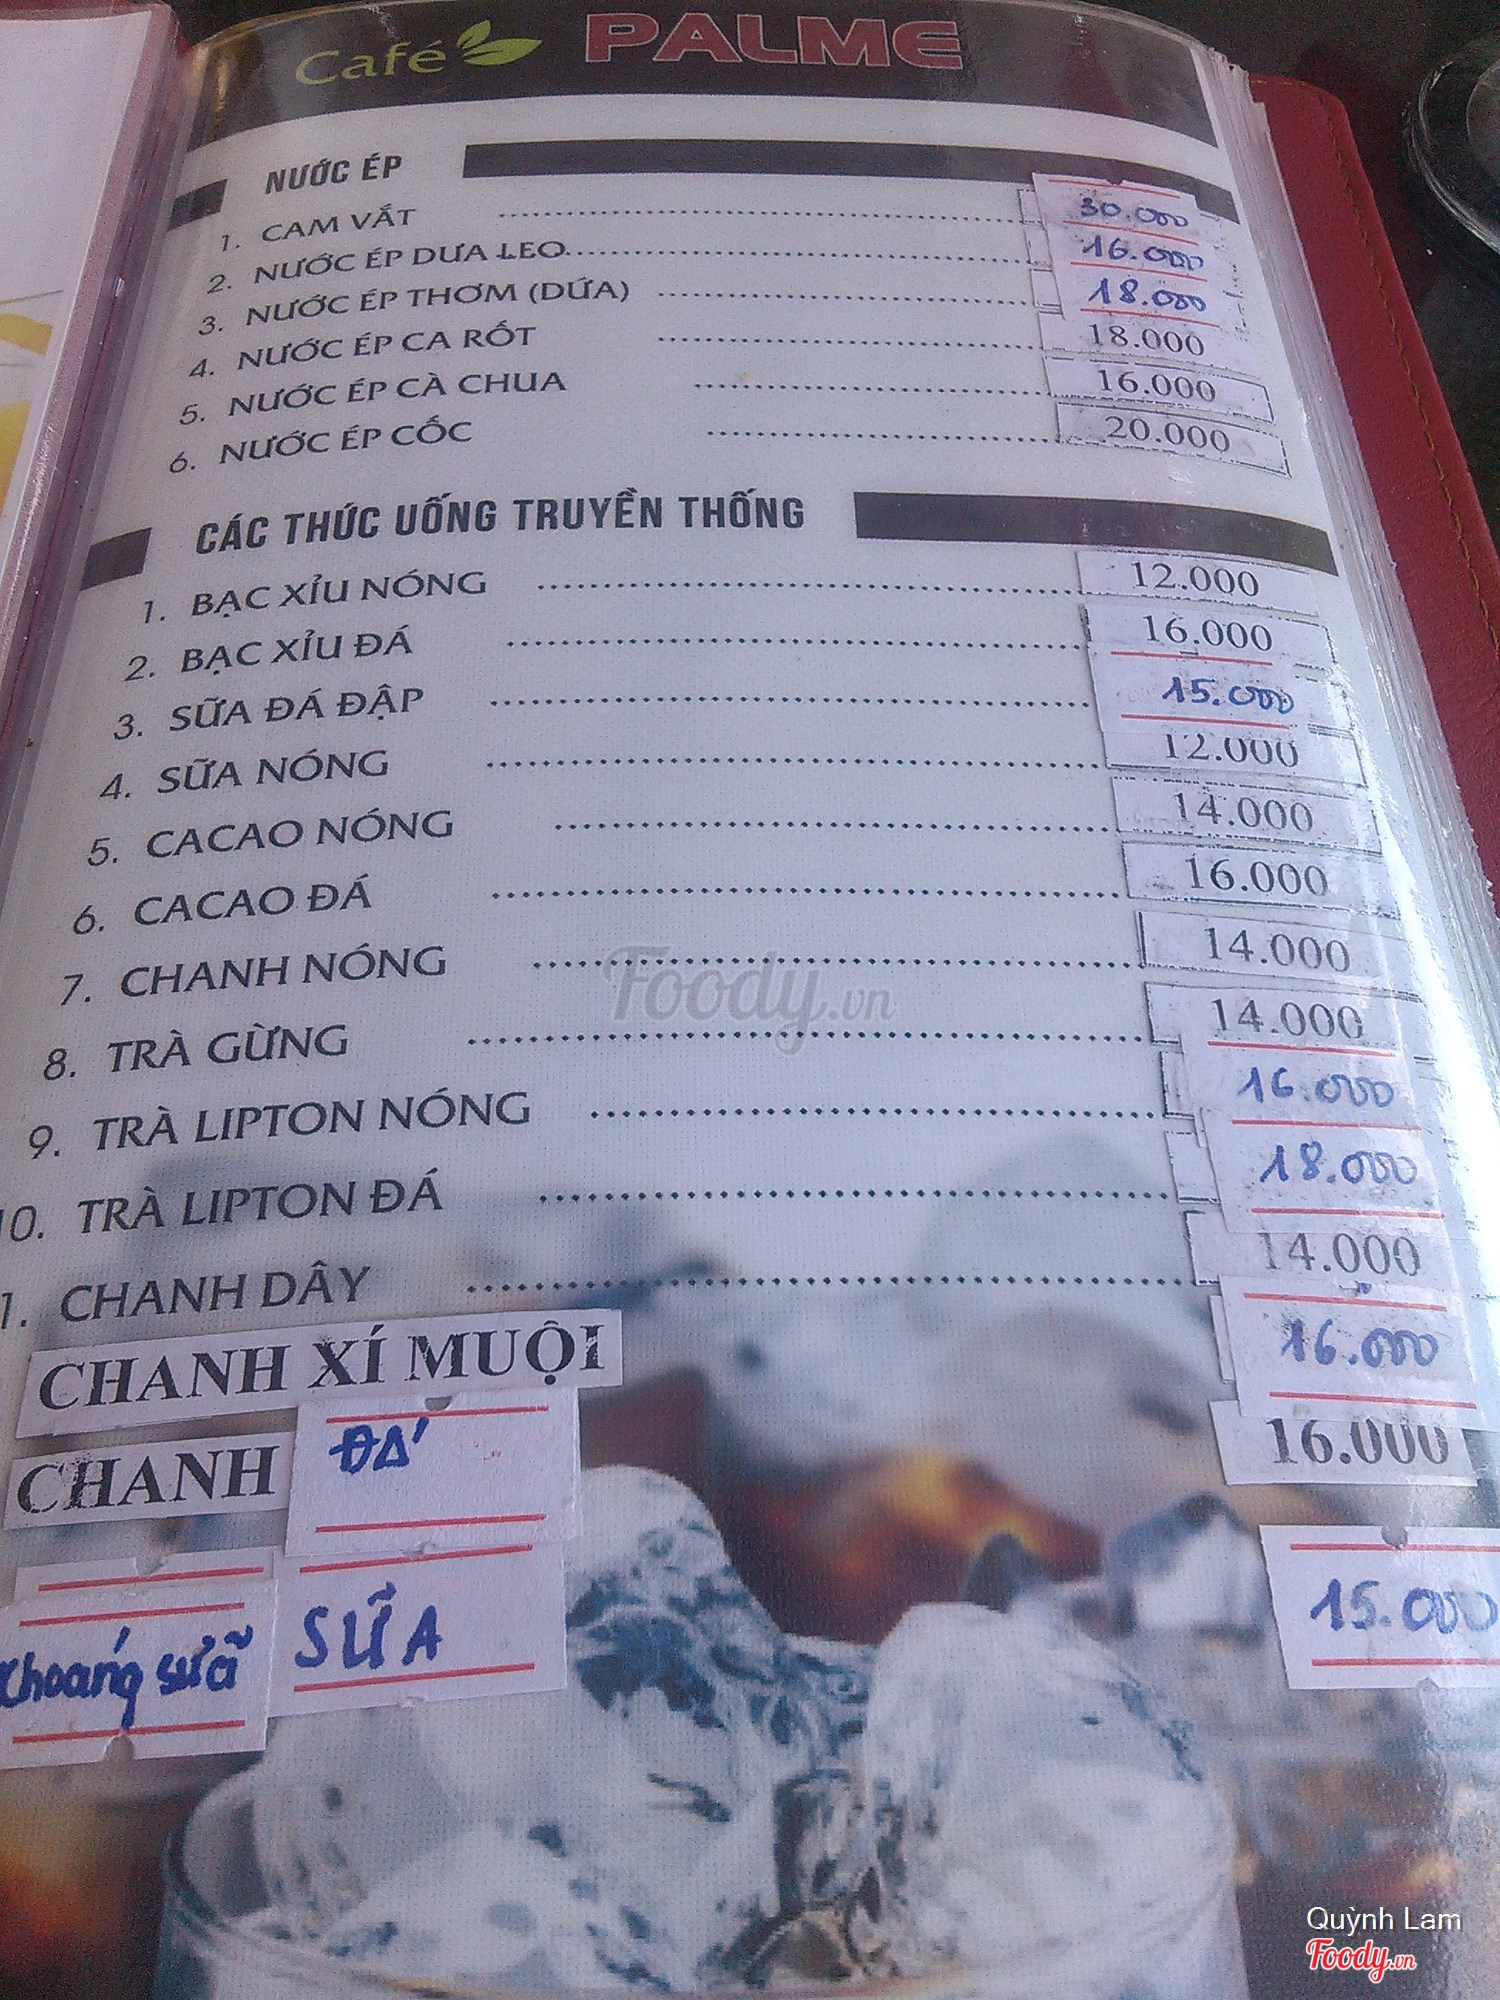 Café PALME
NƯỚC ÉP
1. CAM VẮT 30.000
2. NƯỚC ÉP DƯA LEO 16.000
3. NƯỚC ÉP THƠM (DỨA) 18.000
4. NƯỚC ÉP CA RỐT 18.000
5. NƯỚC ÉP CÀ CHUA 16.000
6. NƯỚC ÉP CỐC 20.000
CÁC THỨC UỐNG TRUYỀN THỐNG
1. BẠC XỈU NÓNG 12.000
2. BẠC XỈU ĐÁ 16.000
3. SỮA ĐÁ ĐẬP 15.000
4. SỮA NÓNG 12.000
5. CACAO NÓNG 14.000
6. CACAO ĐÁ 16.000
7. CHANH NÓNG 14.000
8. TRÀ GỪNG 14.000
9. TRÀ LIPTON NÓNG 16.000
10. TRÀ LIPTON ĐÁ 18.000
1. CHANH DÂY 14.000
CHANH XÍ MUỘI 16.000
CHANH ĐÁ 16.000
Khoáng sữa SỮA 15.000
Foody.vn
Quỳnh Lam
Foody.vn